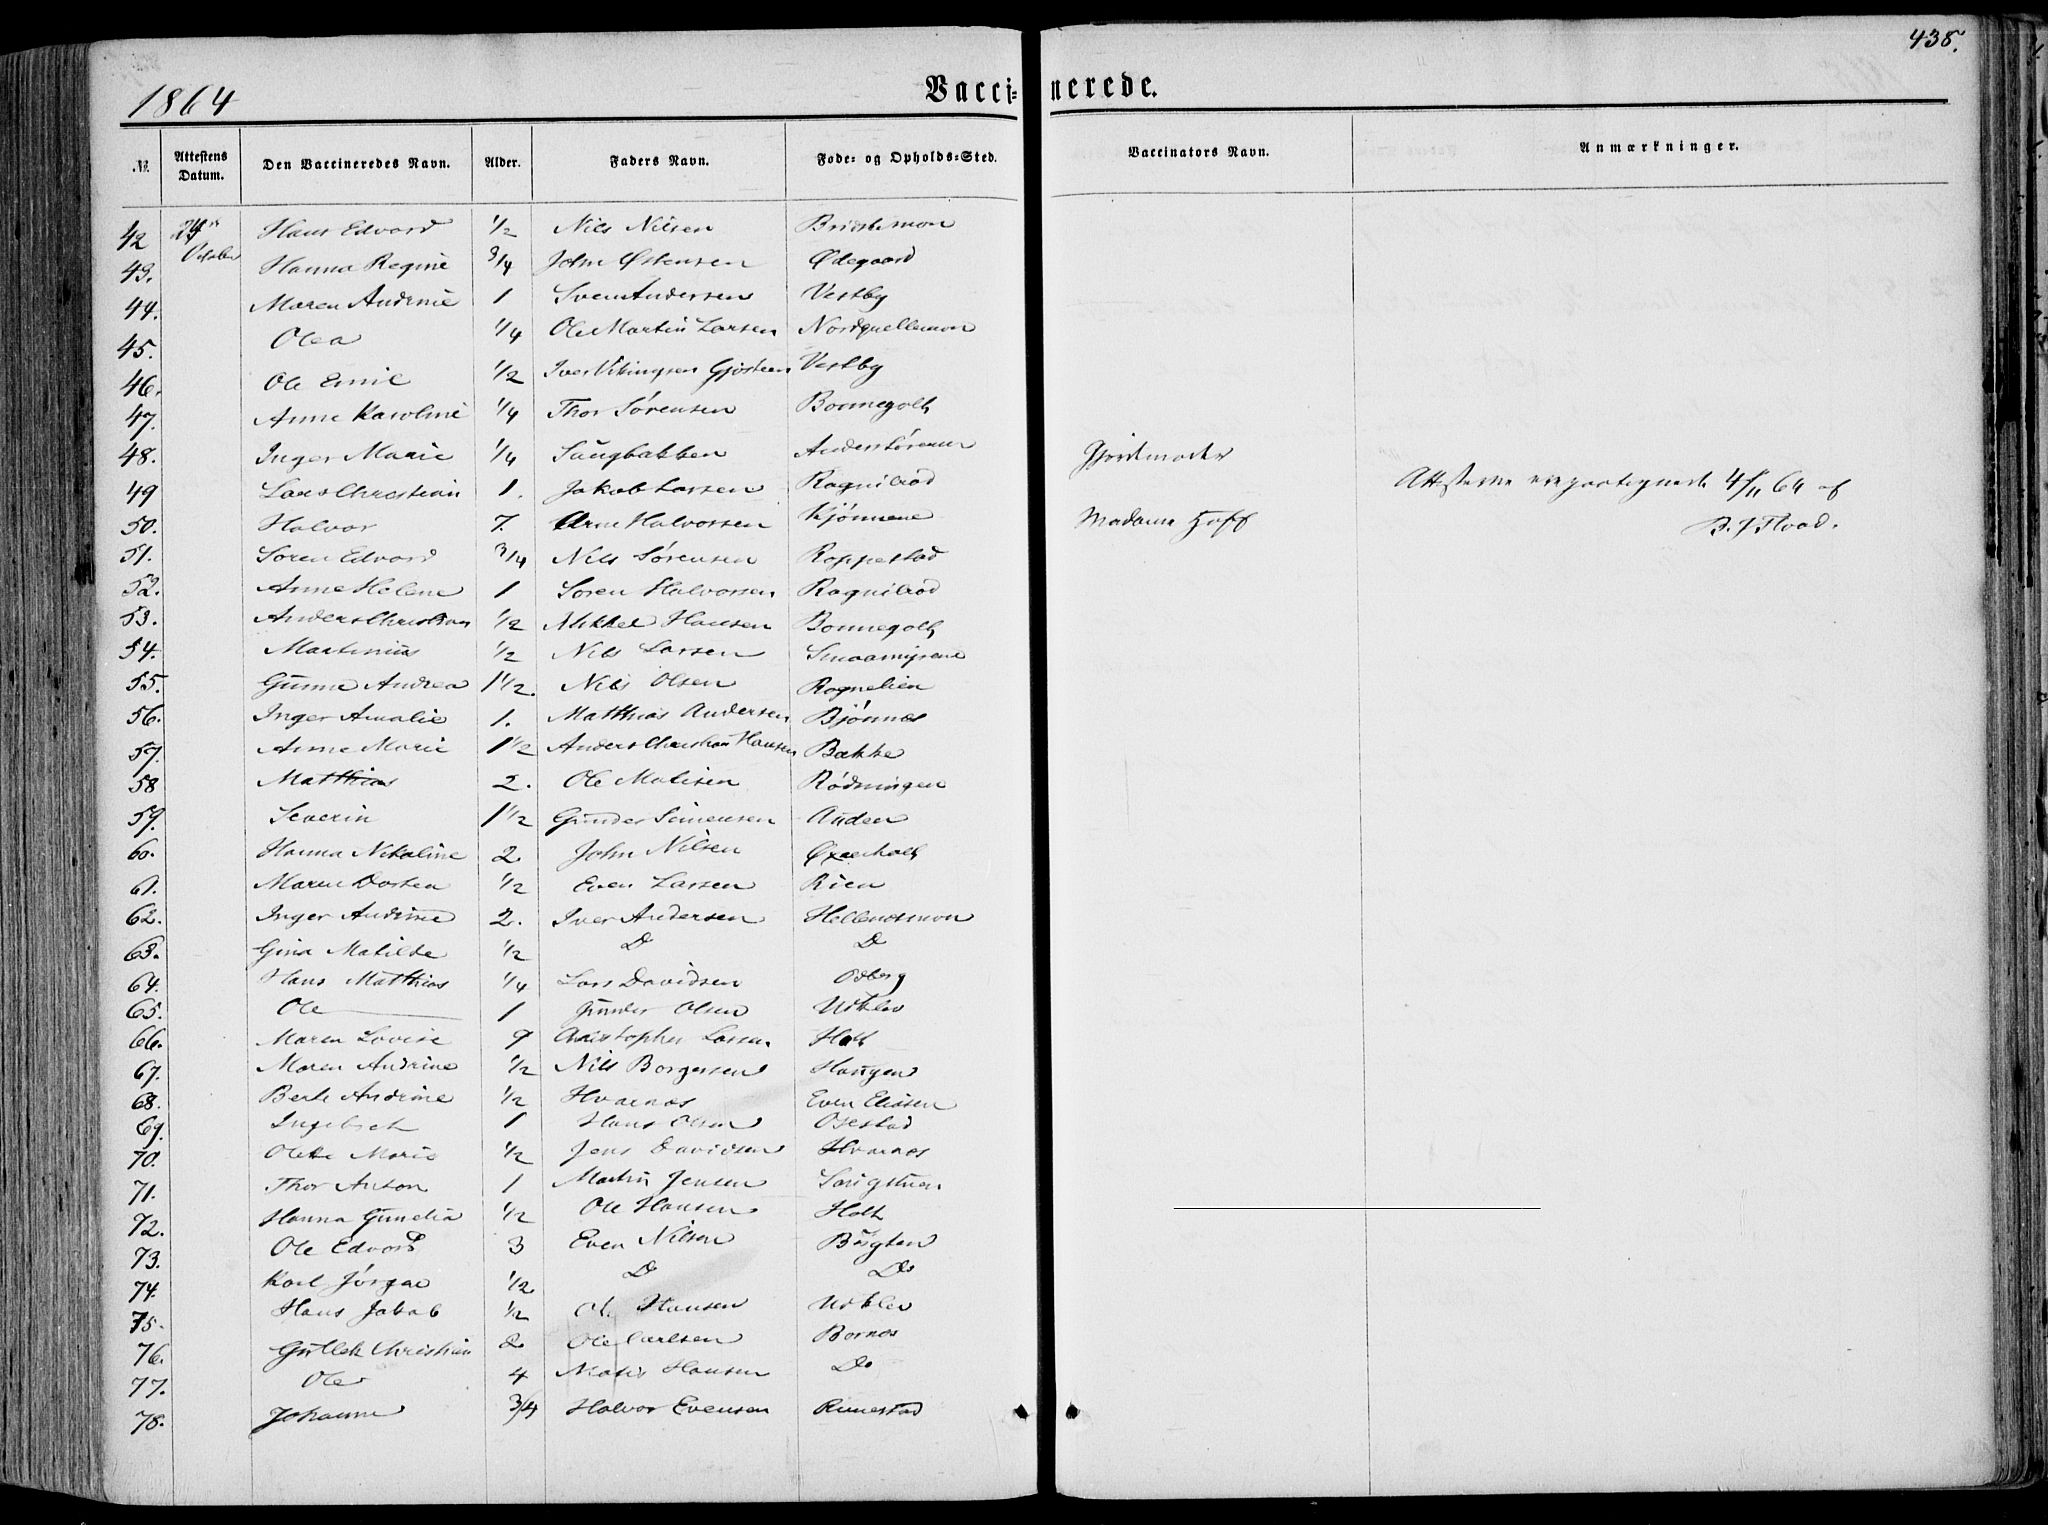 438.
1864
Vaccinerede.
№ Attestens Datum. Den Vaccineredes Navn. Alder. Faders Navn. Føde- og Opholds-Sted. Vaccinators Navn. Anmærkninger.
42 October Hans Edvard 1/2 Nils Nilsen
43. Hanna Regine 3/4 John Østensen Ødegaard
44. Maren Andrine 1 Sven Andersen Vestby
45. Olea 1/4 Ole Martin Larsen Nordquellemon
46. Ole Emil 1/2 Iver Vikingsen Gjøsteen Vestby
47. Anne Karoline 1/4 Thor Sørensen Bonnegolt
48. Inger Marie 1/4 Saugbakken Anders Sørensen Gjordemoder
49 Lars Christian 1. Jakob Larsen Ragnilrød Attesterne 4/11 64 af
50. Halvor 7. Arne Halvorsen Kjønnene Madame Hoff B. J. Flood.
51. Søren Edvard 3/4 Nils Sørensen Roppestad
52. Anne Helene 1 Søren Halvorsen Ragnilrød
53. Anders Christian 1/2 Mikkel Hansen Bonnegolt
54. Martinius 1/2 Nils Larsen Smaamyrene
55. Gunne Andrea 1 1/2. Nils Olsen Rognelien
56. Inger Amalie 1. Matthias Andersen Bjønnes
57. Anne Marie 1 1/2 Anders Christian Hansen Bakke
58 Matthias 2. Ole Matisen Rødningen
59. Severin 1 1/2 Gunder Simensen Auden
60. Hanna Nikoline 2. John Nilsen Øxenholt
61. Maren Dortea 1/2 Even Larsen Rien
62. Inger Andrine 2. Iver Andersen Hellenesmon
63. Gina Matilde 1/2 D D
64. Hans Matthias 1/4 Lars Davidsen Odberg
65. Ole 1 Gunder Olsen Udklev
66. Maren Lovise 9 Christopher Larsen Holt
67. Maren Andrine 1/2 Nils Borgersen Haugen
68. Berte Andrine 1/2 Hvarnes Even Eliasen
69. Ingebret 1 Hans Olsen Ojestad
70. Olette Marie 1/2 Jens Davidsen Hvarnes
71. Thor Anton 1 Martin Jensen Saugstuen
72. Hanna Gunelia 1/2 Ole Hansen Holt
73. Ole Edvard 3 Even Nilsen
74. Karl Jørgen 1/2 D Do
75. Hans Jakob 1/2 Ole Hansen Udklev
76. Gullek Christian 2 Ole Carlsen Bornes
77. Ole 4 Matis Hansen Do
78. Johanne 3/4 Halvor Evensen Rimestad